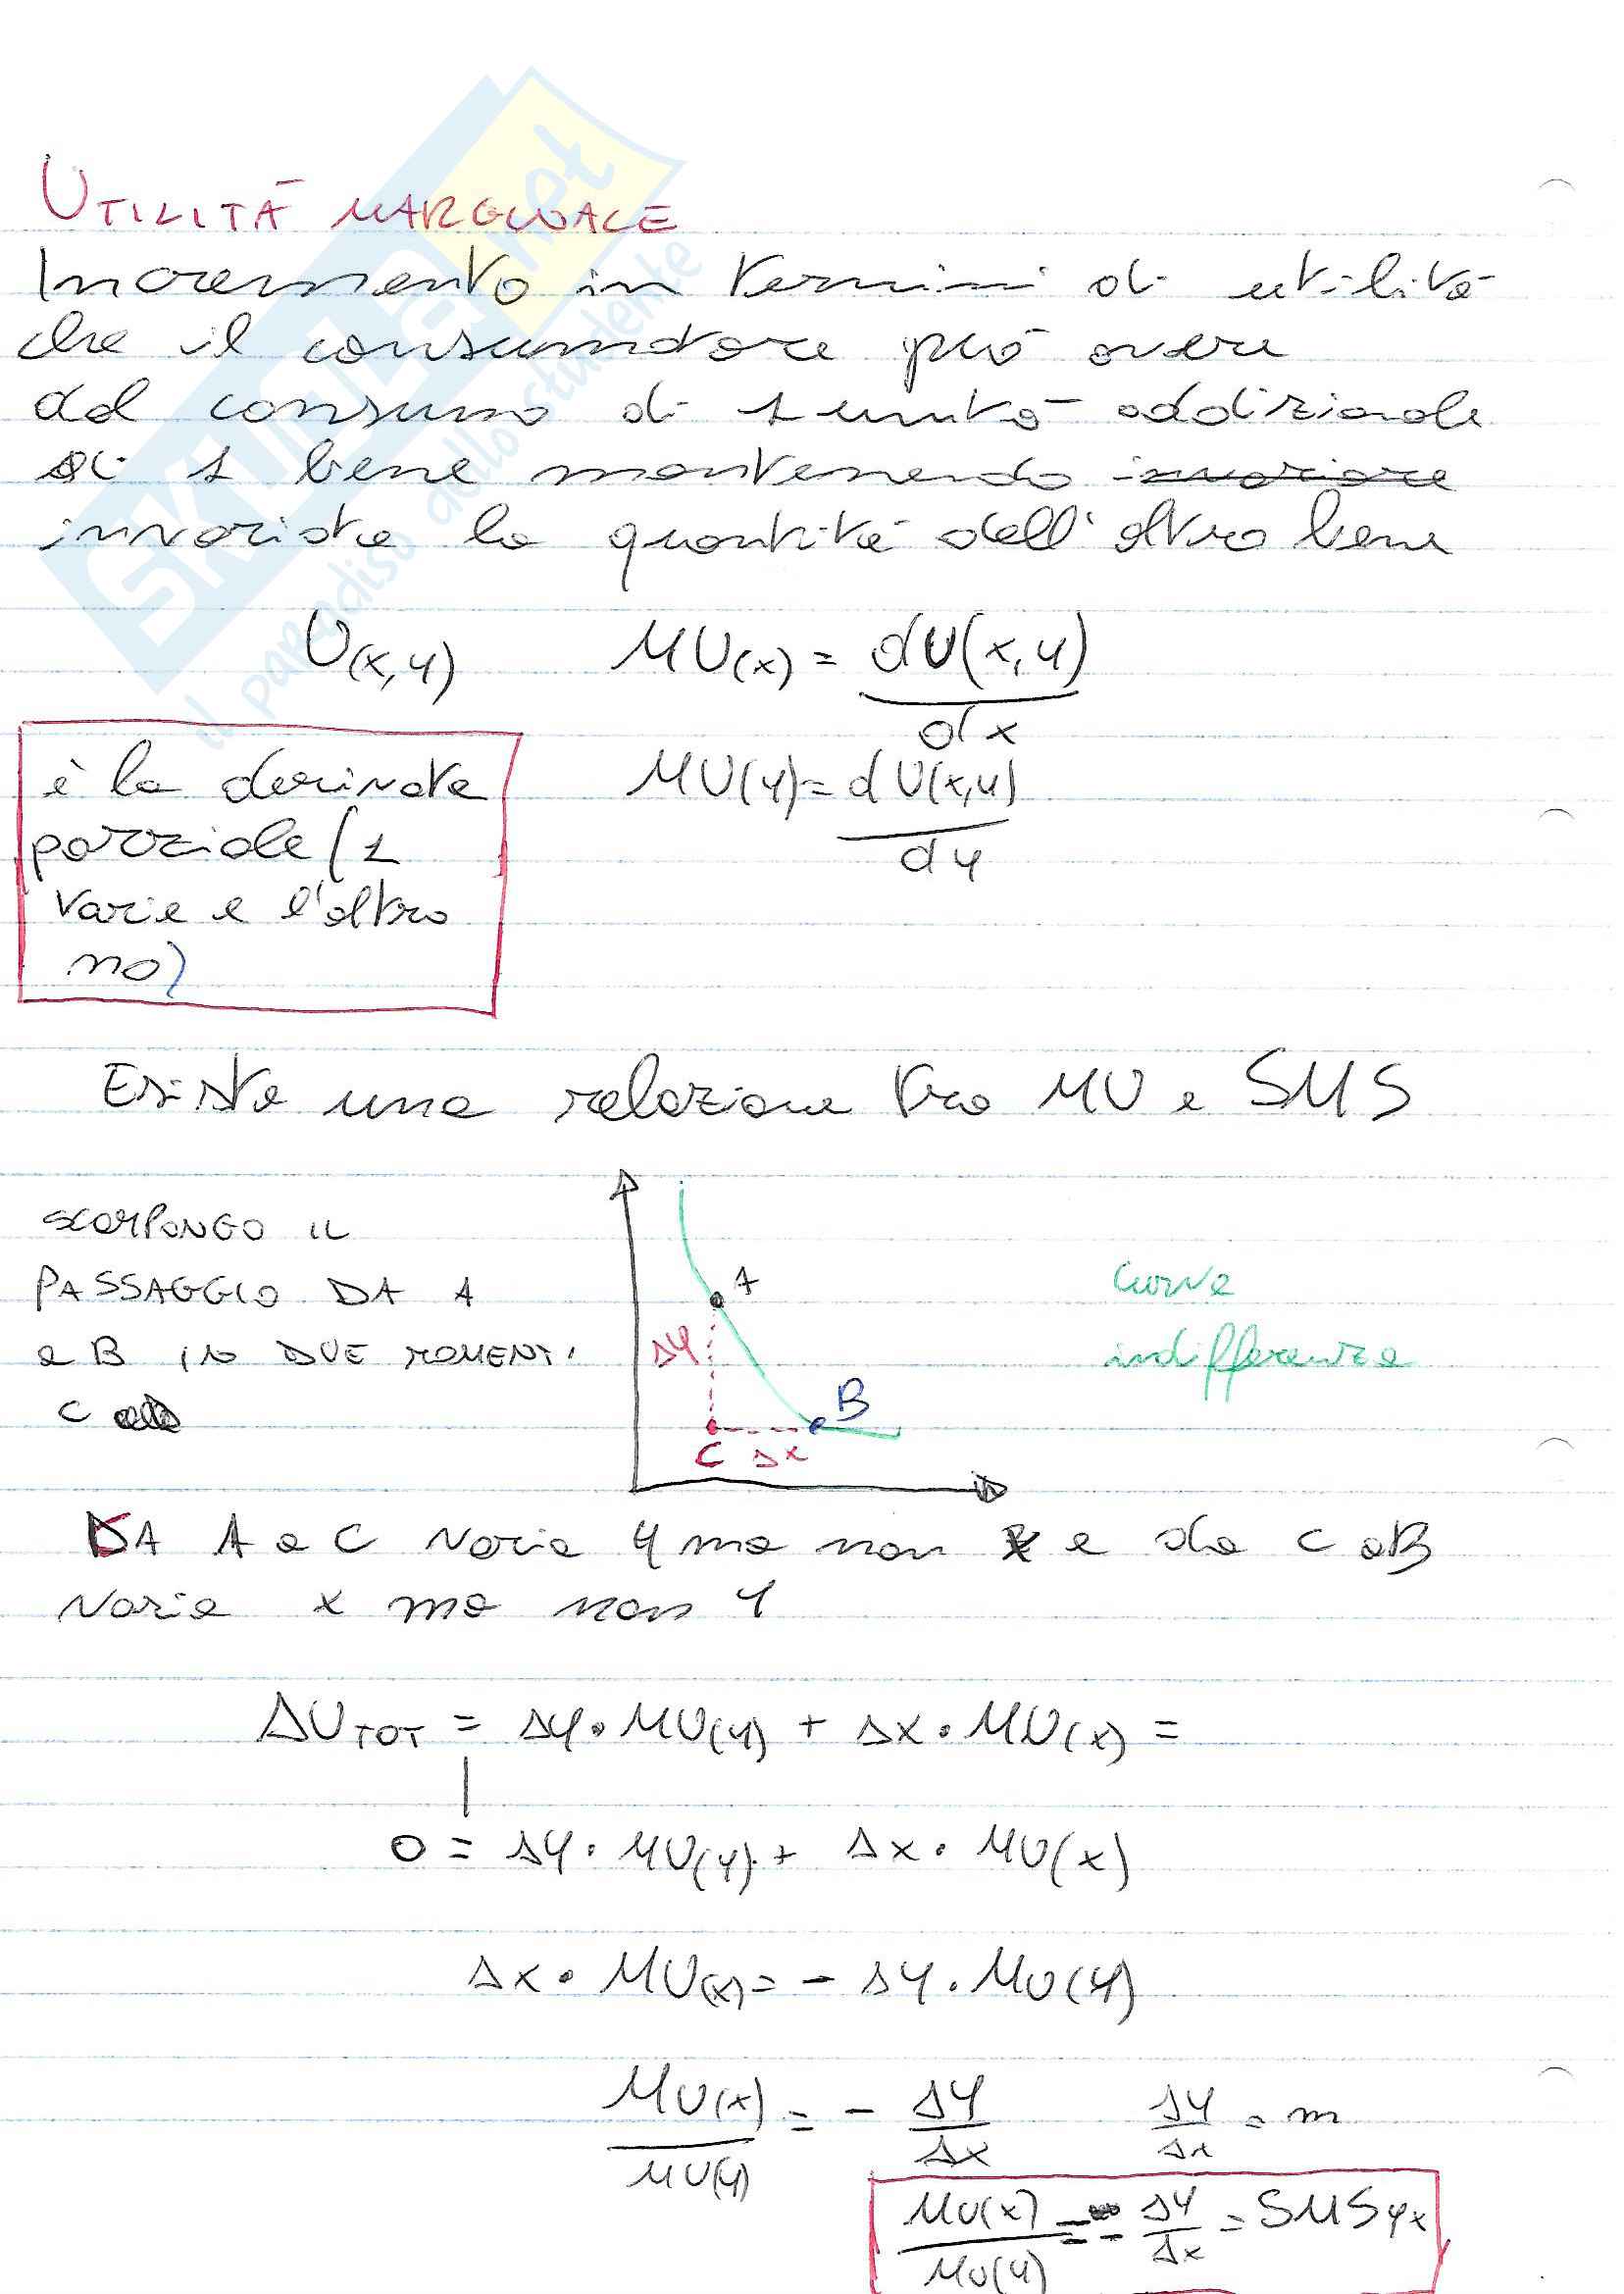 UTILITÀ MARGINALE
Incremento in termini di utilità
che il consumatore può avere
dal consumo di 1 unità addizionale
di 1 bene mantenendo invariare
invariata la quantità dell'altro bene
U(x,y) MU(x) = dU(x,y)
dx
MU(y) = dU(x,y)
dy
è la derivata
parziale (1
varia e l'altro
no)
Esiste una relazione tra MU e SMS
SCOMPONGO IL
PASSAGGIO DA A
a B IN DUE MOMENTI
C
A
Δy
B
C Δx
curva
indifferenza
DA A a C varia y ma non x e da C a B
varia x ma non y
ΔU TOT = Δy · MU(y) + Δx · MU(x) =
0 = Δy · MU(y) + Δx · MU(x)
Δx · MU(x) = - Δy · MU(y)
MU(x) = - Δy Δy = m
MU(y) Δx Δx
MU(x) = - Δy = SMSyx
MU(y) Δx
SKUOLA.net
il paradiso dello studente